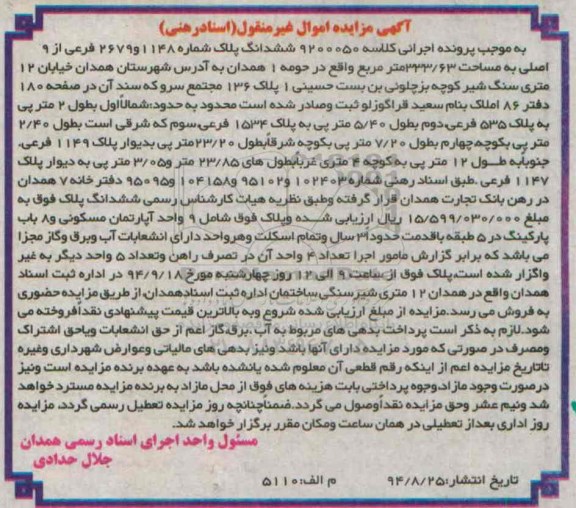 آگهی مزایده اموال غیرمنقول(اسنادرهنی)
به موجب پرونده اجرائی کلاسه ۹۲۰۰۰۵۰ ششدانگ پلاک شماره ۱۱۴۸و۲۶۷۹ فرعی از ۹
اصلی به مساحت ۳۳۳/۶۳متر مربع واقع در حومه ۱ همدان به آدرس شهرستان همدان خیابان ۱۲
متری سنگ شیر کوچه بزچلوئی بن بست حسینی ۱ پلاک ۱۳۶ مجتمع سرو که سند آن در صفحه ۱۸۰
دفتر ۸۶ املاک بنام سعید قراگوزلو ثبت وصادر شده است محدود به حدود:شمالاًاول بطول ۲ متر پی
به پلاک ۵۳۵ فرعی،دوم بطول ۵/۴۰ متر پی به پلاک ۱۵۳۴ فرعی،سوم که شرقی است بطول ۲/۴۰
متر پی بکوچه،چهارم بطول ۷/۲۰ متر پی بکوچه شرقاًبطول ۲۳/۲۰متر پی بدیوار پلاک ۱۱۴۹ فرعی،
جنوبابه طول ۱۲ متر پی به کوچه ۴ متری غرباًبطول های ۲۳/۸۵ متر و۳/۰۵ متر پی به دیوار پلاک
۱۱۴۷ فرعی .طبق اسناد رهنی شماره ۱۰۲۴۰۳ و۹۵۱۰۲ و۱۰۴۱۵۸ و۹۵۰۹۵ دفتر خانه ۷ همدان
در رهن بانک تجارت همدان قرار گرفته وطبق نظریه هیات کارشناس رسمی ششدانگ پلاک فوق به
مبلغ ۱۵/۵۹۹/۰۳۰/۰۰۰ ریال ارزیابی شده وپلاک فوق شامل ۹ واحد آپارتمان مسکونی و۸ باب
پارکینگ در ۵ طبقه باقدمت حدود۳ سال وتمام اسکلت وهرواحد دارای انشعابات آب وبرق وگاز مجزا
می باشد که برابر گزارش مامور اجرا تعداد ۴ واحد آن در تصرف راهن وتعداد ۵ واحد دیگر به غیر
واگزار شده است،پلاک فوق از ساعت ۹ الی ۱۲ روز چهارشنبه مورخ ۹۴/۹/۱۸ در اداره ثبت اسناد
همدان واقع در همدان ۱۲ متری شیر سنگی ساختمان اداره ثبت اسنادهمدان،از طریق مزایده حضوری
به فروش می رسد.مزایده از مبلغ ارزیابی شده شروع وبه بالاترین قیمت پیشنهادی نقدآفروخته می
شود.لازم به ذکر است پرداخت بدهی های مربوط به آب،برق،گاز اعم از حق انشعابات ویاحق اشتراک
ومصرف در صورتی که مورد مزایده دارای آنها باشد ونیز بدهی های مالیاتی وعوارض شهرداری وغیره
تاتاریخ مزایده اعم از اینکه رقم قطعی آن معلوم شده یانشده باشد به عهده برنده مزایده است ونیز
درصورت وجود مازاد،وجوه پرداختی بابت هزینه های فوق از محل مازاد به برنده مزایده مسترد خواهد
شد ونیم عشر وحق مزایده نقداًوصول می گردد.ضمناًچنانچه روز مزایده تعطیل رسمی گردد، مزایده
روز اداری بعداز تعطیلی در همان ساعت ومکان مقرر برگزار خواهد شد.
مسئول واحد اجرای اسناد رسمی همدان
جلال حدادی
تاریخ انتشار:۹۴/۸/۲۵ م الف:۵۱۱۰